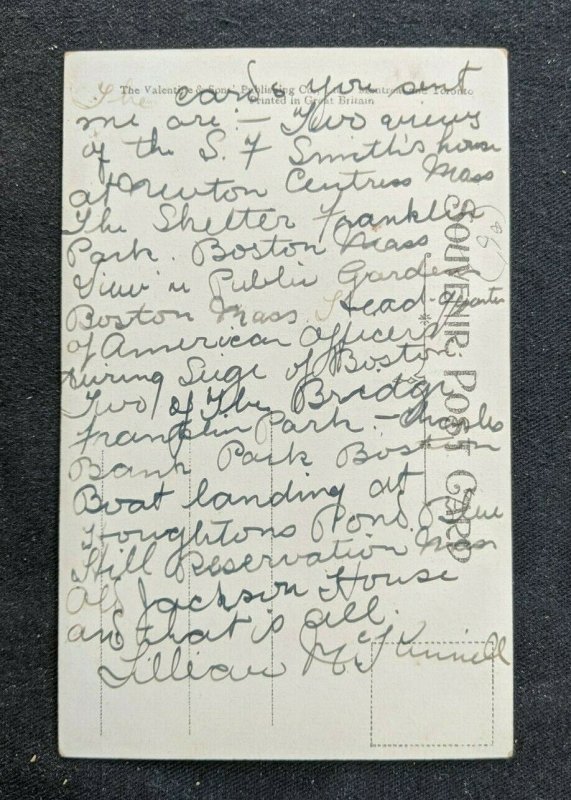 The Valentine & Sons' Publishing Co., Montreal and Toronto
Printed in Great Britain
SOUVENIR POST CARD
The cards you sent
me are :- Two views
of the S. F Smith's house
at Newton Centress Mass
The Shelter Franklin
Park. Boston Mass
View in Public Garden
Boston Mass. Head-quarters
of American Officers
During Seige of Boston.
Two of The Bridge
Franplin Park - Charles
Bank Park Boston
Boat landing at
Houghtons Pond, Blue
Hill Reservation Mass
Old Jackson House
and that is all.
Lillian McKinnell